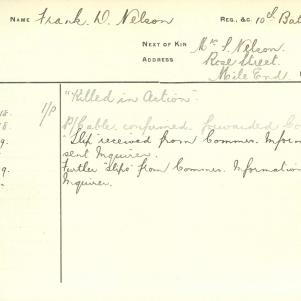 NAME Frank D. Nelson REG., & C. 10th Bat
NEXT OF KIN Mr. S. Nelson.
ADDRESS Rose Street.
Mile End
18. 1/P "Killed in Action".
8. P/Cable. confirmed. forwarded Co
9. "Slip" received from Commrs. Inform
sent Inquirer.
9. Further "slips" from Commrs. Information
Inquirer.